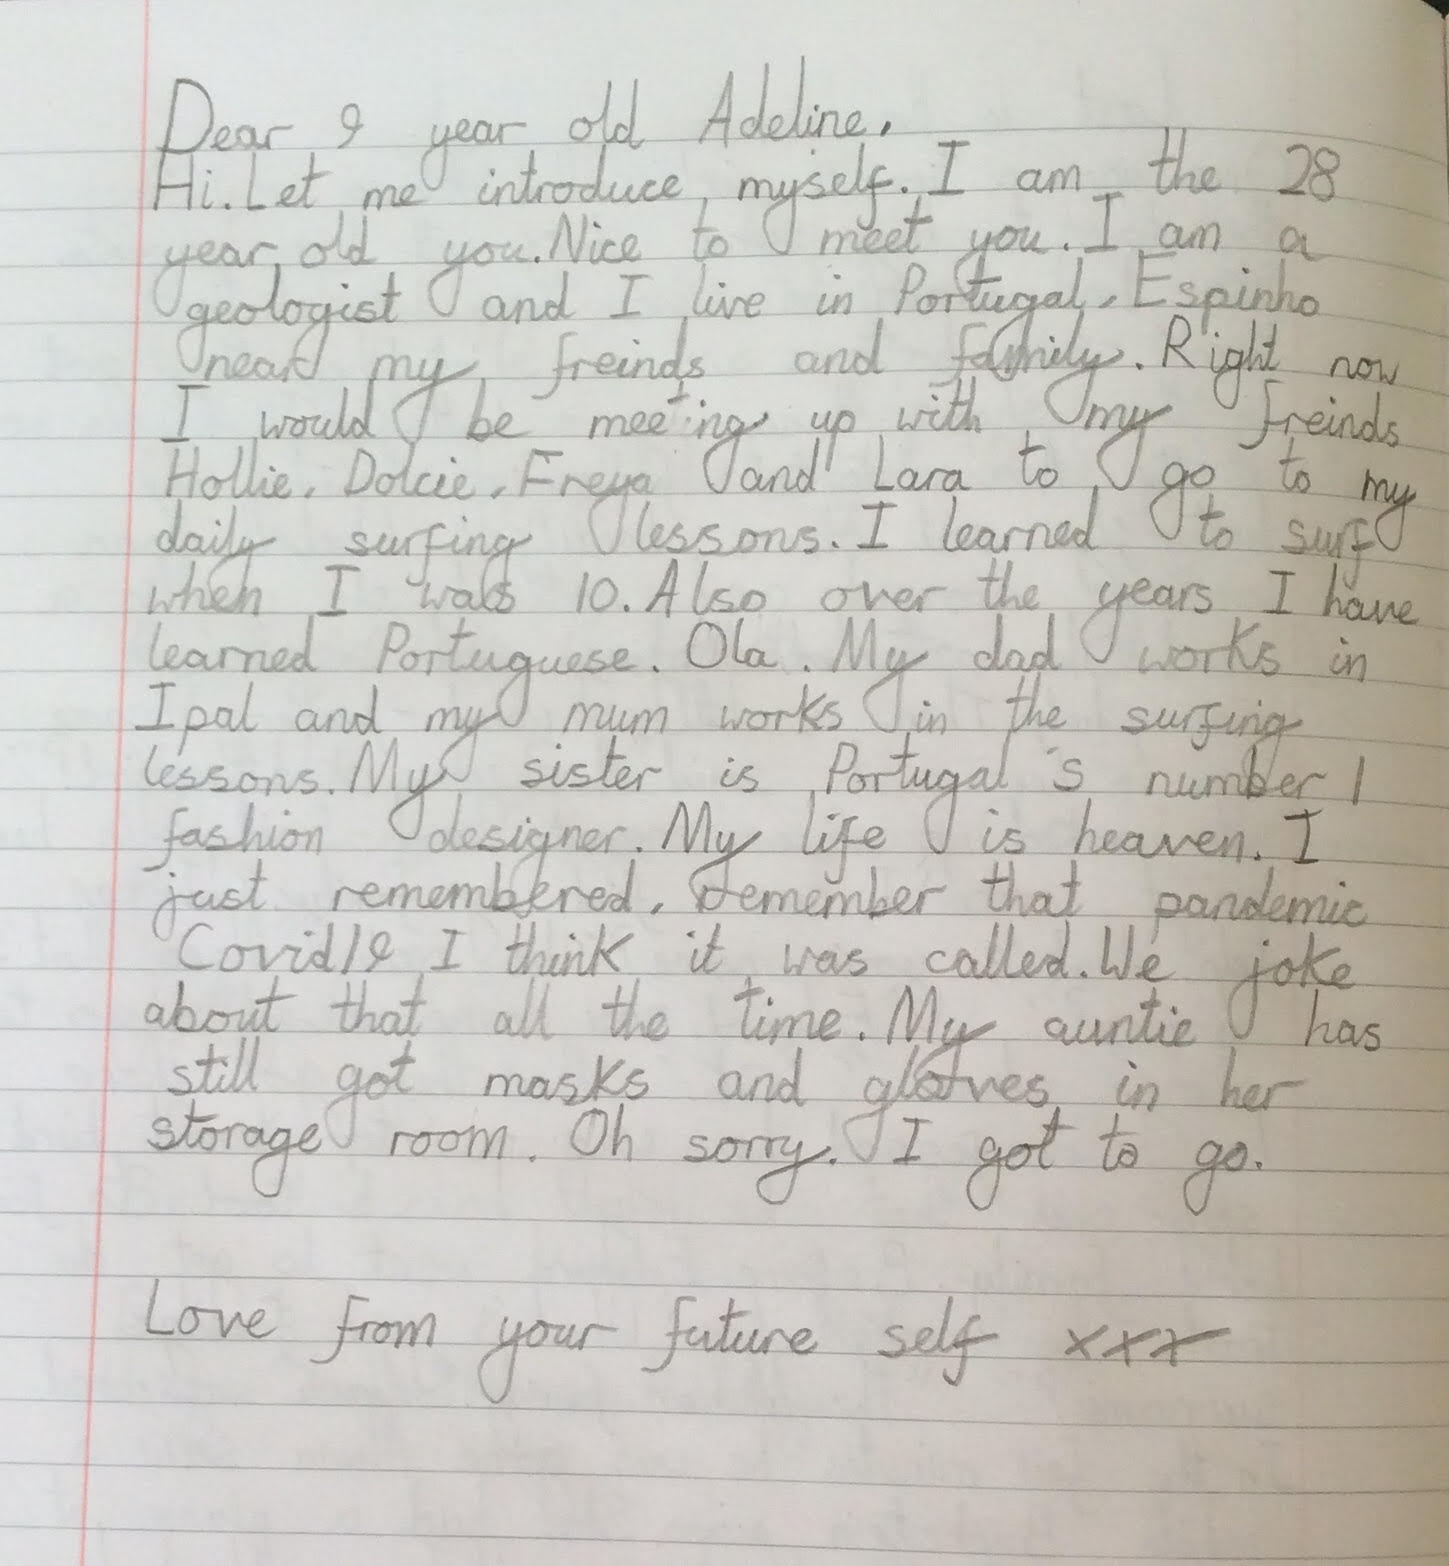 Dear 9 year old Adeline,
Hi. Let me introduce myself. I am the 28
year old you. Nice to meet you. I am a
geologist and I live in Portugal, Espinho
near my freinds and family. Right now
I would be meeting up with my freinds
Hollie, Dolcie, Freya and Lara to go to my
daily surfing lessons. I learned to surf
when I was 10. Also over the years I have
learned Portuguese. Ola. My dad works in
Ipal and my mum works in the surfing
lessons. My sister is Portugal's number 1
fashion designer. My life is heaven. I
just remembered, remember that pandemic
Covid19 I think it was called. We joke
about that all the time. My auntie has
still got masks and gloves in her
storage room. Oh sorry. I got to go.
Love from your future self xxx